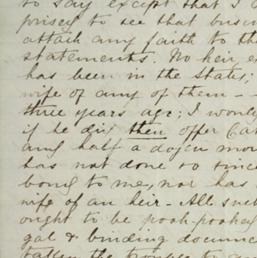 to say except that I
prised to see that busin
attach any faith to th
statements. No heir, e
has been in the States,
wife of any of them - -
three years ago; I would
if he did then offer Cat
and half a dozen mor
has not done so since
bond to me, nor has
wife of an heir. All suc
ought to be pooh-poohed
gal & binding docume
taken the trouble to